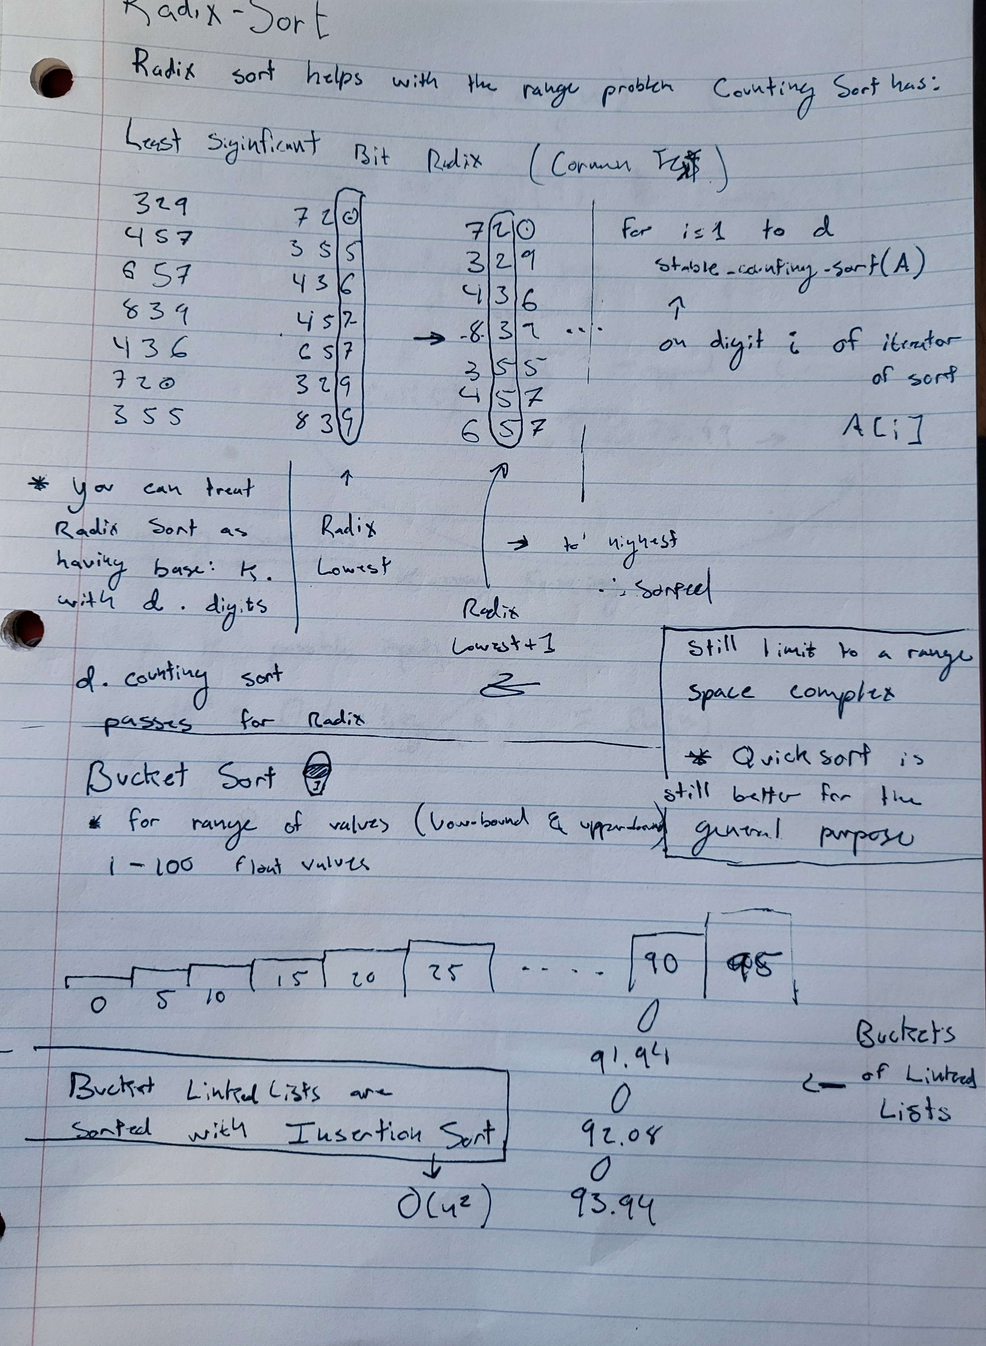 Radix-Sort
Radix sort helps with the range problem Counting Sort has:
Least Siginficant Bit Radix (
329
457
657
839
436
720
355
720
355
436
457
657
329
839
720
329
436
→ 839 ....
355
457
657
for i=1 to d
stable_counting_sort(A)
↑
on digit i of iterator
of sort
A[i]
* you can treat
Radix Sort as
having base: K.
with d. digits
↑
Radix
Lowest
Radix
Lowest+1
→ to highest
∴ sorted
d. counting sort
passes for Radix
Still limit to a range
space complex
* Quicksort is
still better for the
general purpose
Bucket Sort
* for range of values (low-bound & upperbound)
1-100 float values
0 5 10 15 20 25 ..... 90 95
0
91.94
0
92.08
0
93.94
Buckets
← of Linked
Lists
Bucket Linked Lists are
Sorted with Insertion Sort
↓
O(n²)